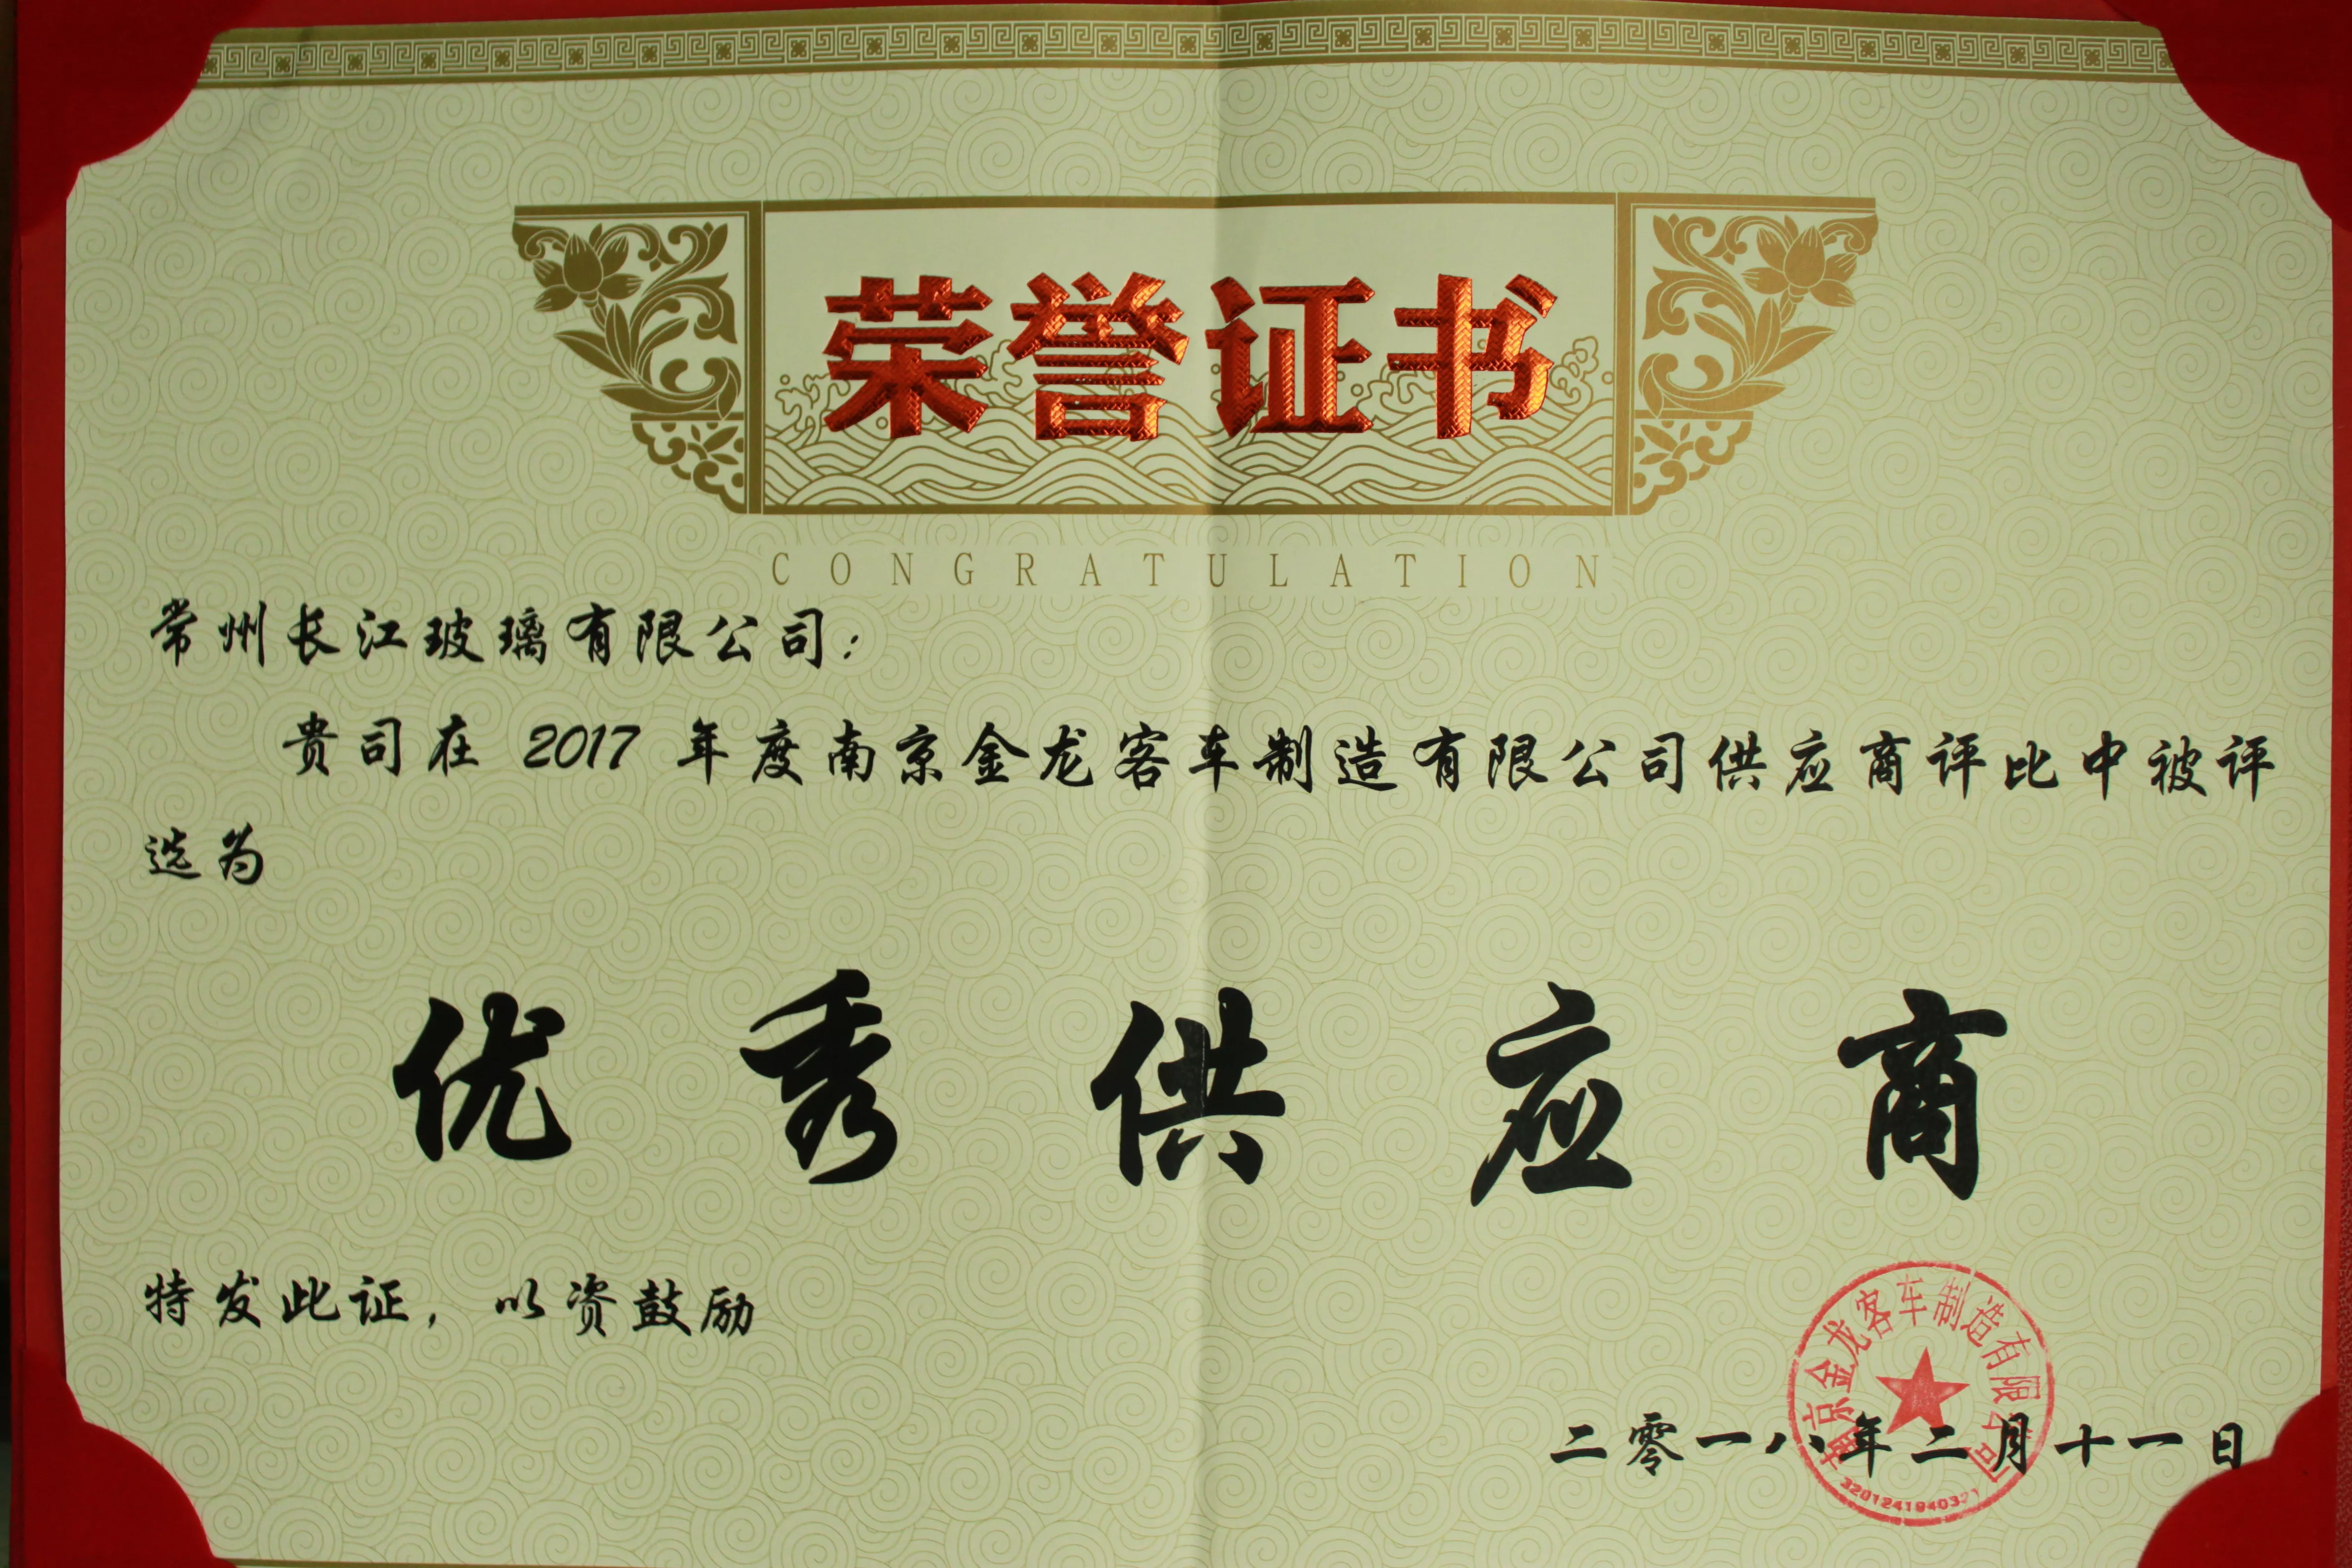 荣誉证书
CONGRATULATION
常州长江玻璃有限公司：
贵司在 2017 年度南京金龙客车制造有限公司供应商评比中被评
选为
优秀供应商
特发此证，以资鼓励
南京金龙客车制造有限公司
二零一八年二月十一日